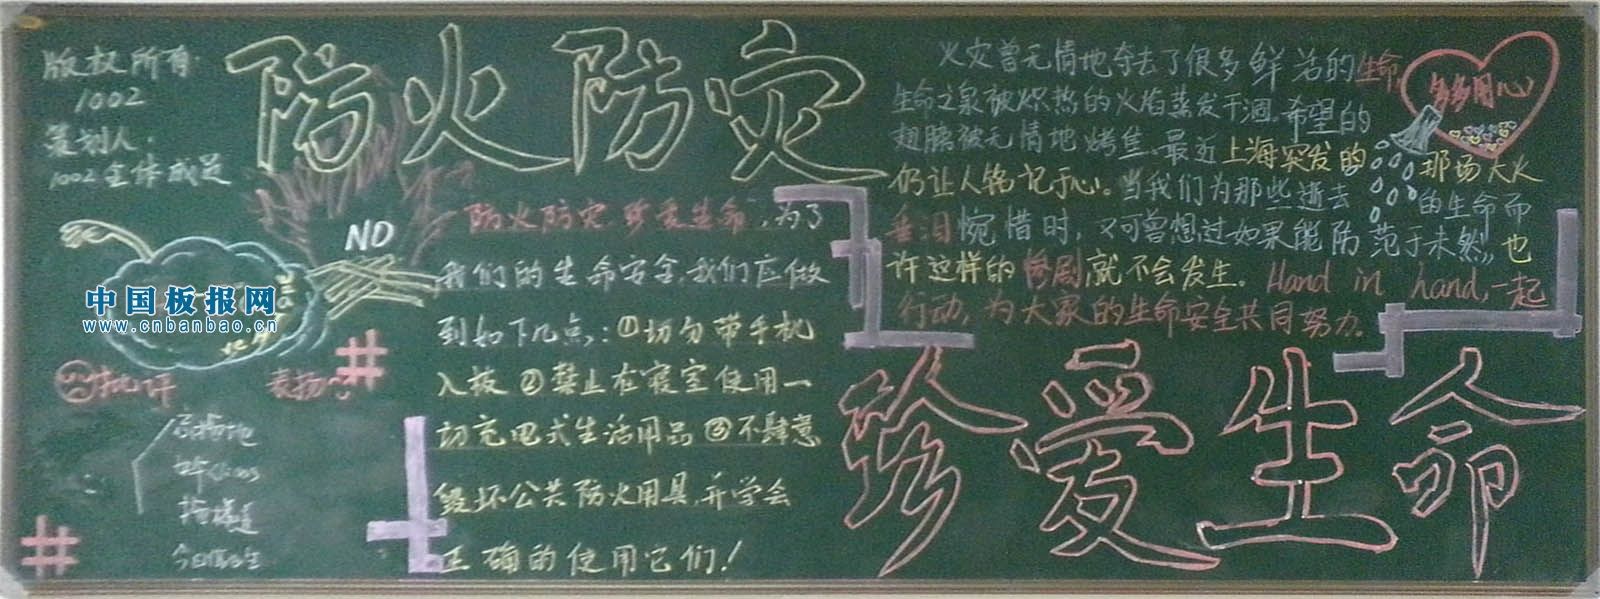 版权所有:
1002
策划人:
1002全体成员
防火防灾
NO
中国板报网
www.cnbanbao.cn
批评
表扬
今日值日生
"防火防灾 珍爱生命",为了
我们的生命安全,我们应做
到如下几点:①切勿带手机
入校②禁止在寝室使用一
切充电式生活用品③不肆意
毁坏公共防火用具,并学会
正确的使用它们!
火灾曾无情地夺去了很多鲜活的生命,
生命之泉被炽热的火焰蒸发干涸.希望的
翅膀被无情地烤焦、最近上海突发的那场大火
仍让人铭记于心。当我们为那些逝去的生命而
垂泪惋惜时,又可曾想过如果能防范于未然,也
许这样的惨剧就不会发生。Hand in hand,一起
行动,为大家的生命安全共同努力.
多多用心
珍爱生命